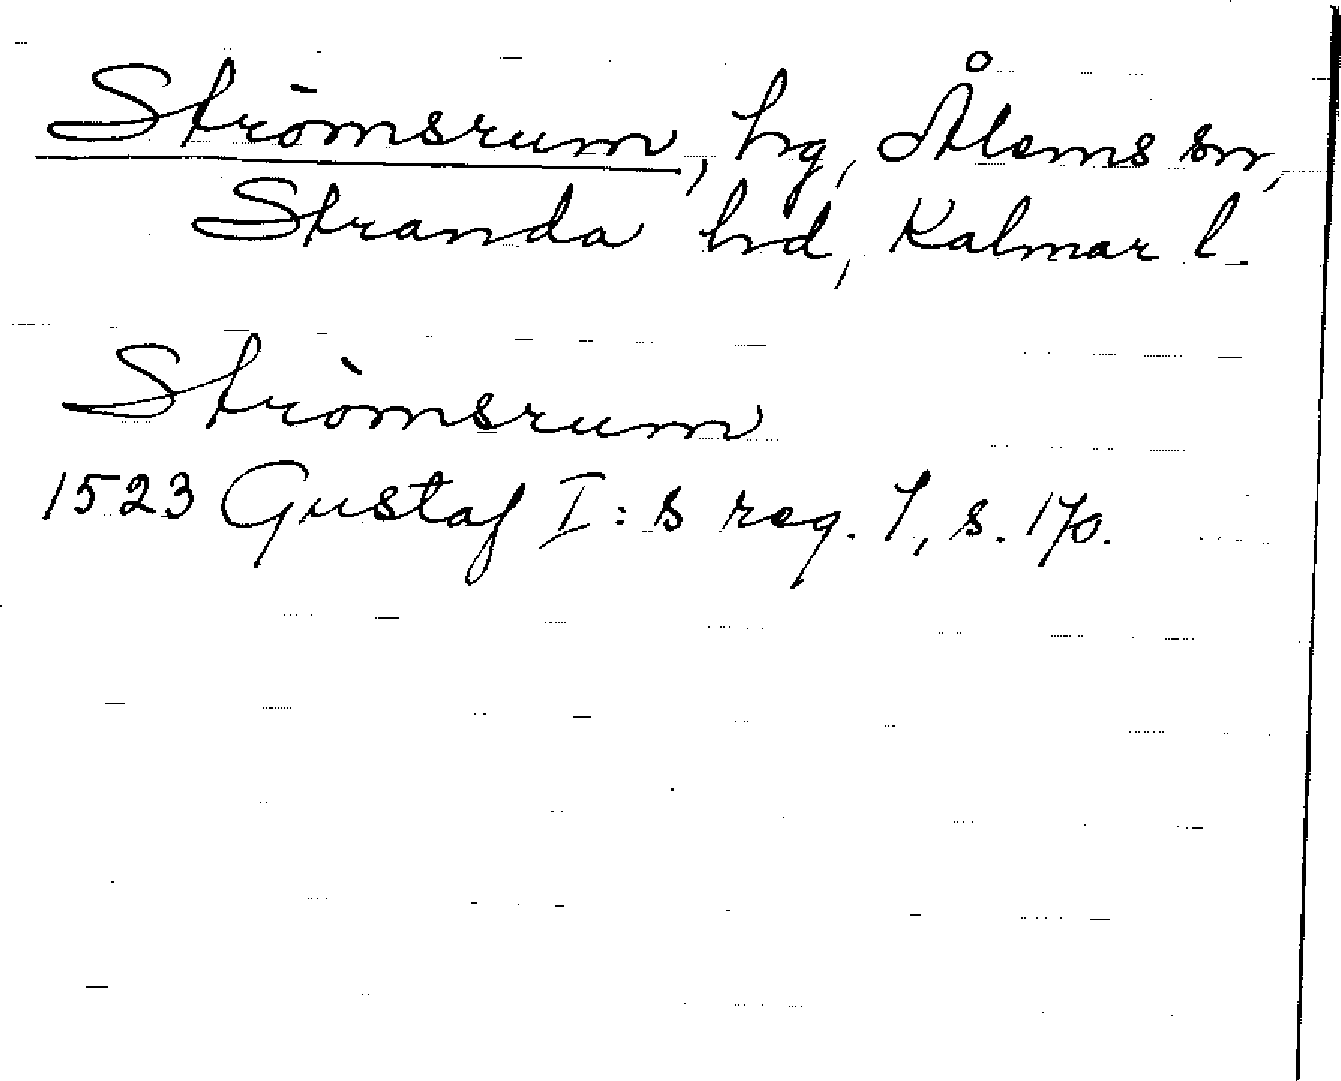 Strömsrum, hg, Ålems sn,
Stranda hd, Kalmar l.
Strömsrum
1523 Gustaf I:s reg. 1, s. 170.